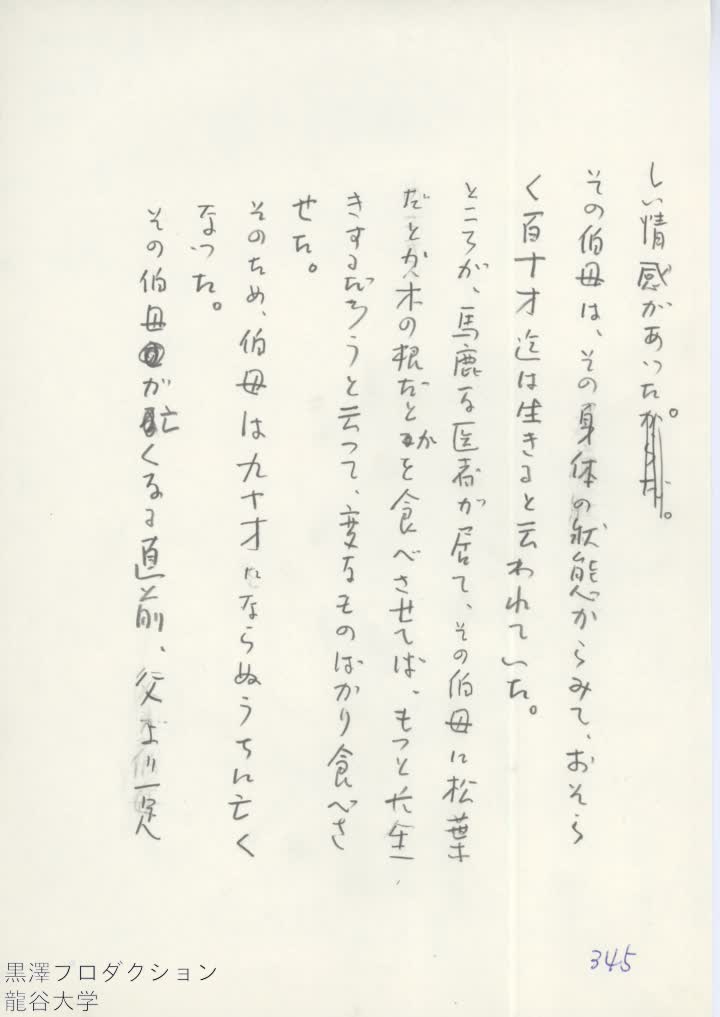 しい情感があつた。
その伯母は、その身体の状態からみて、おそら
く百十才迄は生きると云われていた。
ところが、馬鹿な医者が居て、その伯母に松葉
だとか木の根だとかを食べさせてば、もつと长生
きするだろうと云つて、変なものばかり食べさ
せた。
そのため、伯母は九十才にならぬうちに亡く
なつた。
その伯母が亡くなる直前、父より一寸
345
黒澤プロダクション
龍谷大学